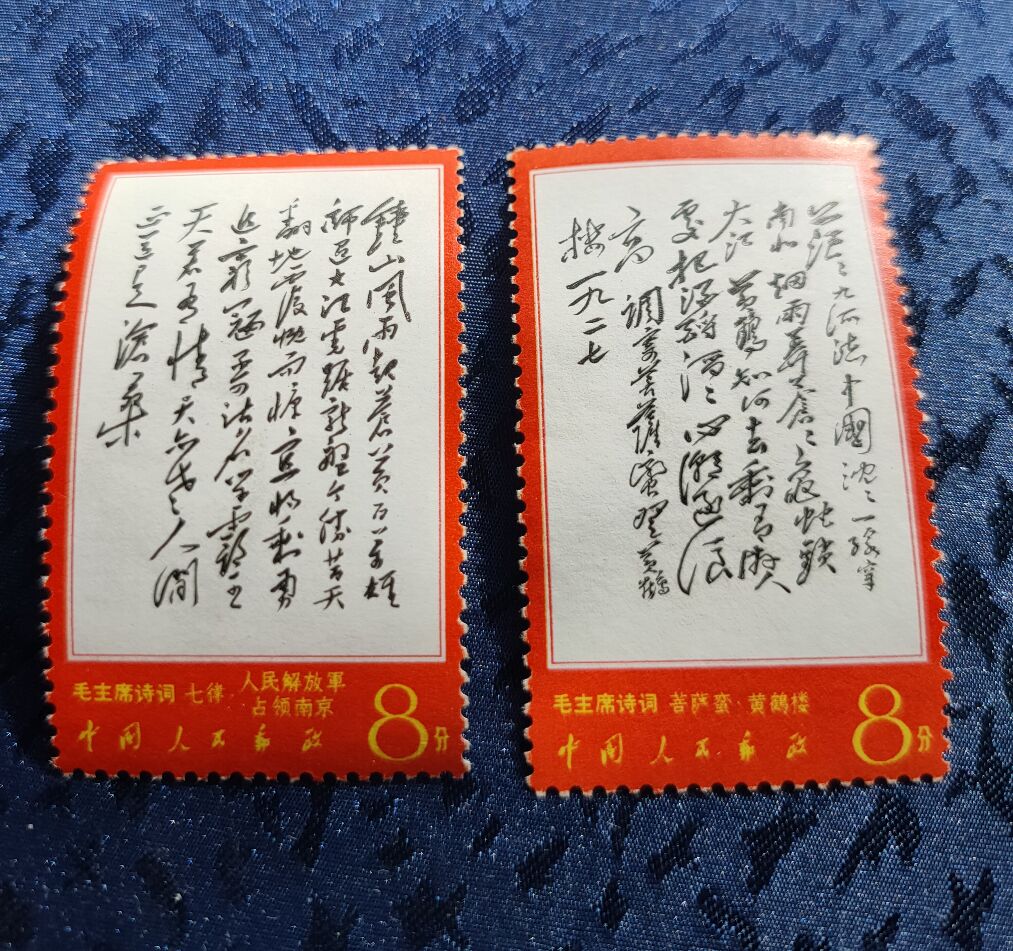 鐘山風雨起蒼黃百万雄
師過大江虎踞龍盤今勝昔天
翻地覆慨而慷宜将剩勇
追窮寇不可沽名学霸王
天若有情天亦老人間
正道是滄桑
毛主席诗词 七律·人民解放軍
占领南京
8分
中国人民邮政
茫々九派流中國沈々一线穿
南北烟雨莽蒼々龜蛇鎖
大江 黃鶴知何去剩有遊人
處把酒酹滔々心潮逐浪
高 調寄菩薩蠻登黃鶴
楼 一九二七
毛主席诗词 菩萨蛮·黄鹤楼
8分
中国人民邮政